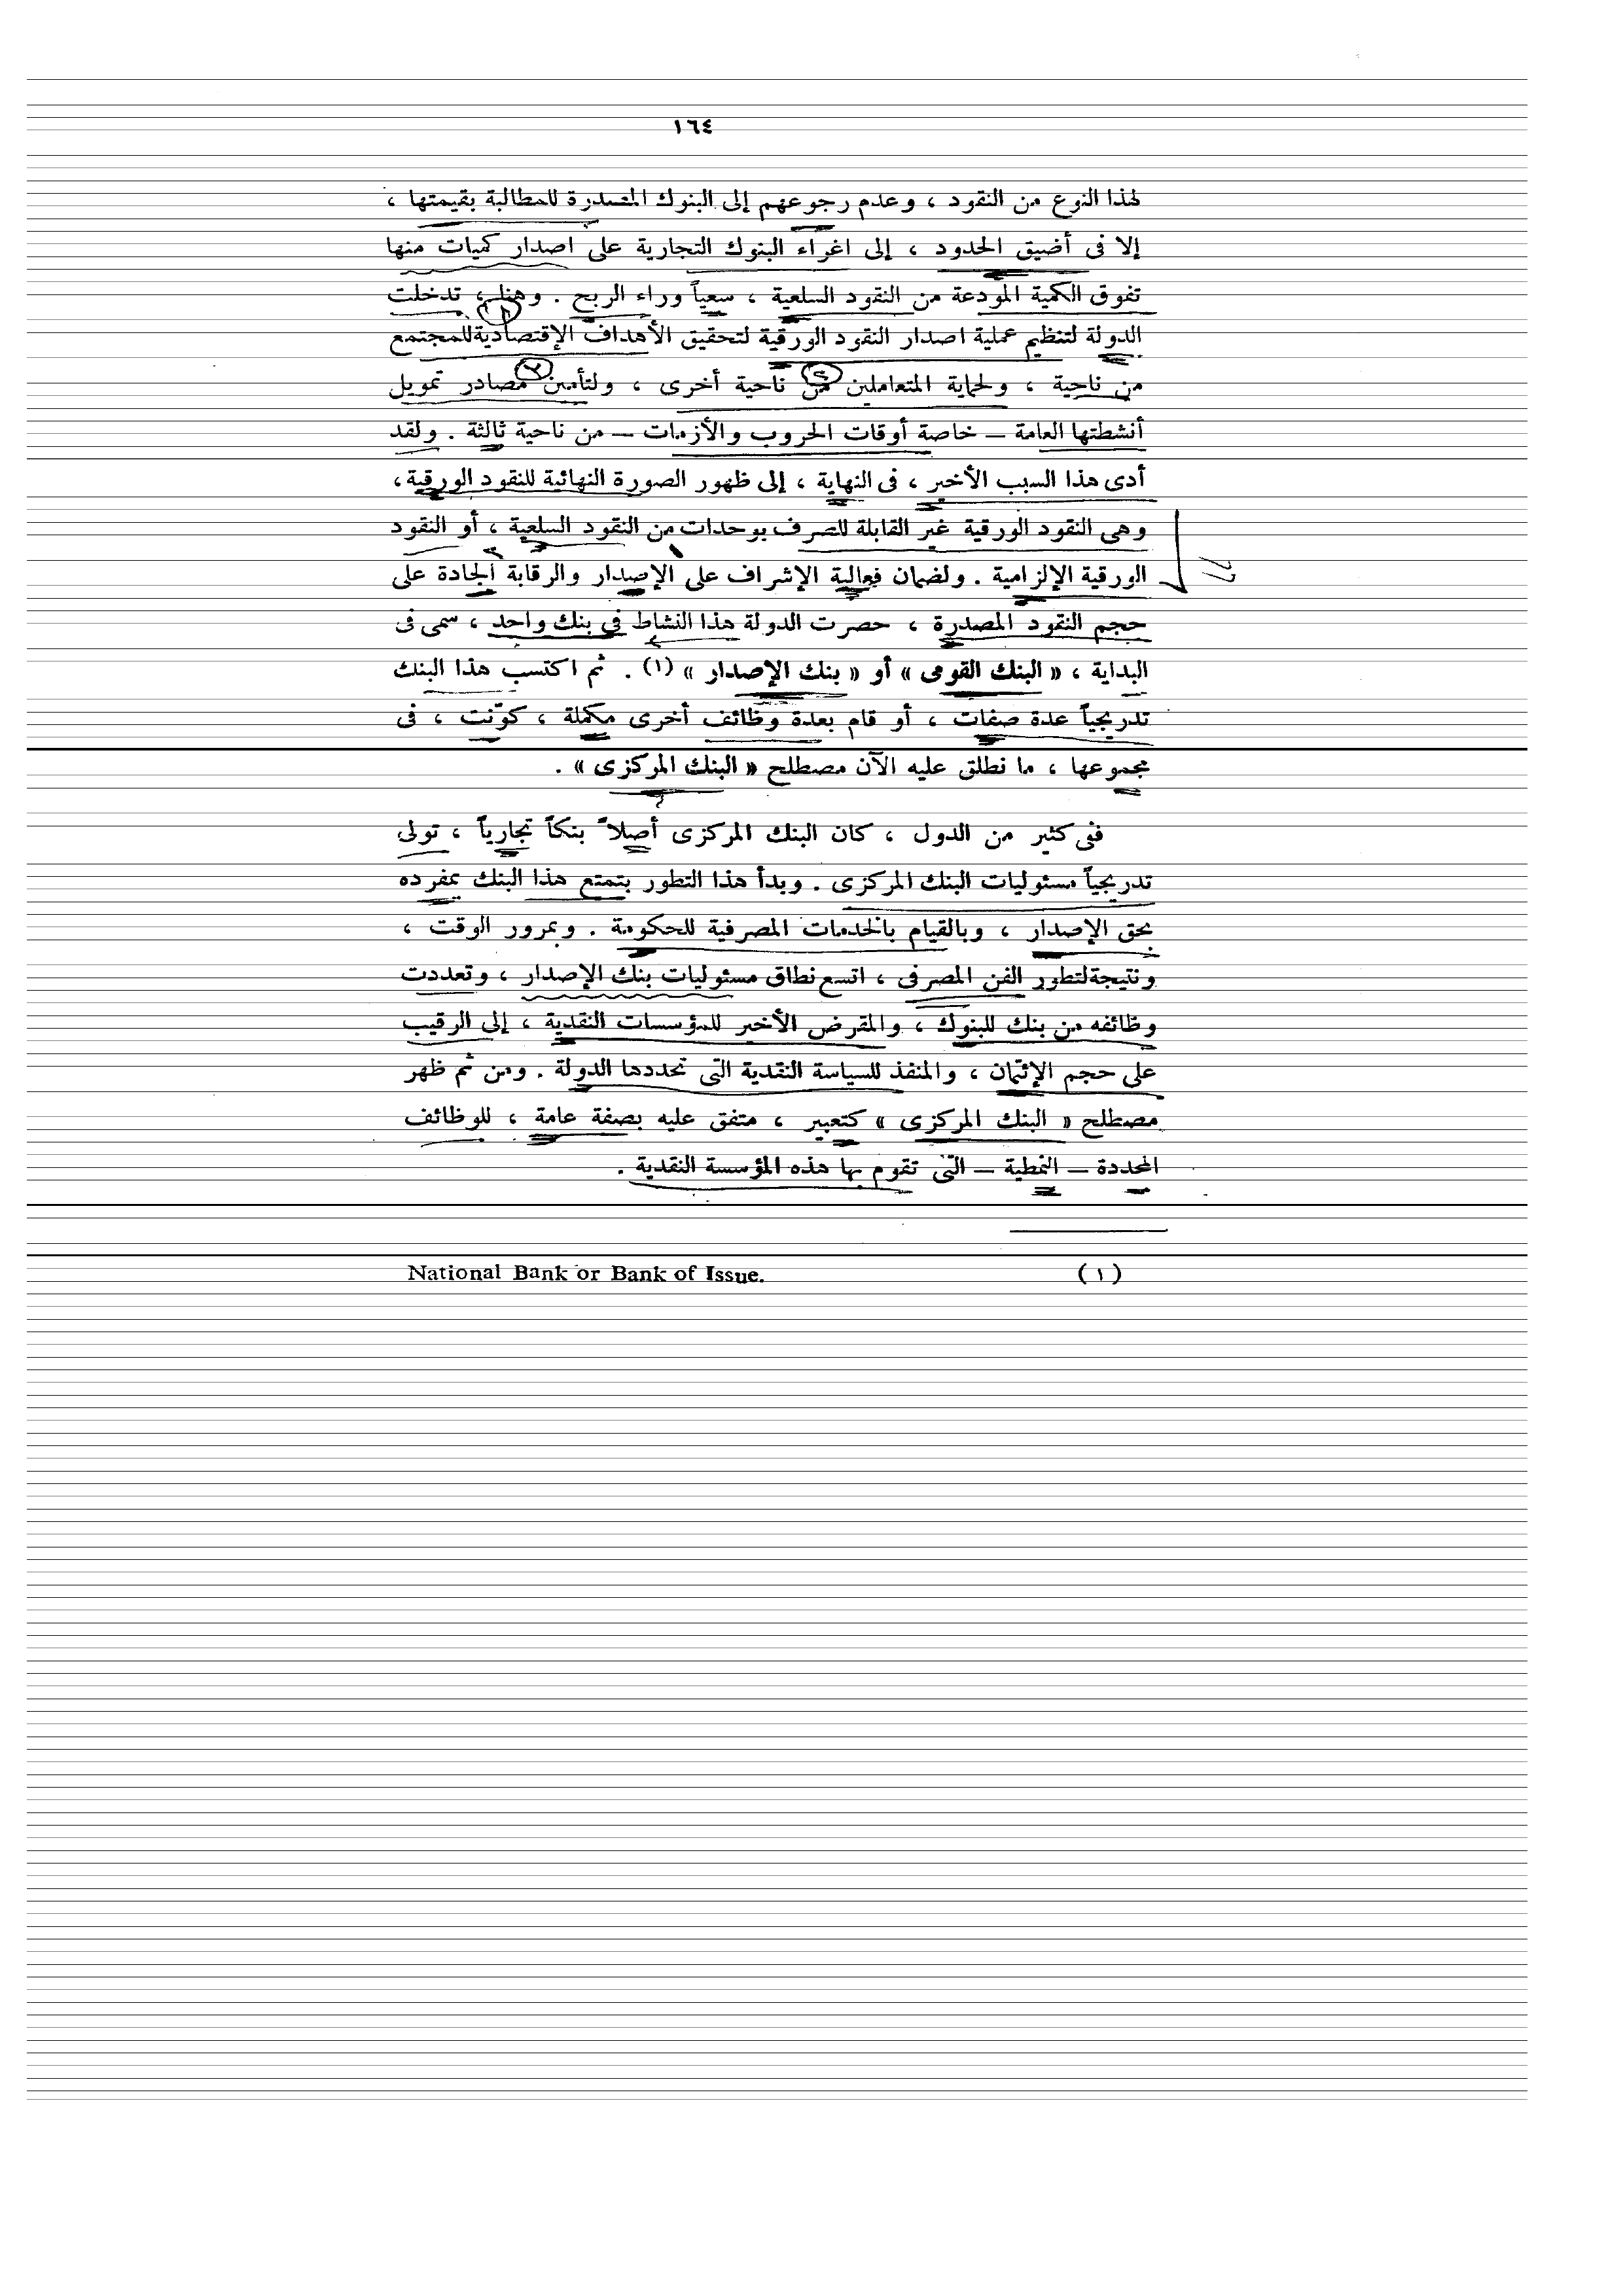 ١٦٤
لهذا النوع من النقود ، وعدم رجوعهم إلى البنوك المصدرة للمطالبة بقيمتها ،
إلا فى أضيق الحدود ، إلى اغراء البنوك التجارية على اصدار كميات منها
تفوق الكمية المودعة من النقود السلعية ، سعياً وراء الربح . وهنا ، تدخلت
الدولة لتنظيم عملية اصدار النقود الورقية لتحقيق الأهداف الإقتصادية للمجتمع
من ناحية ، ولحماية المتعاملين من ناحية أخرى ، ولتأمين مصادر تمويل
أنشطتها العامة – خاصة أوقات الحروب والأزمات – من ناحية ثالثة . ولقد
أدى هذا السبب الأخير ، فى النهاية ، إلى ظهور الصورة النهائية للنقود الورقية ،
وهى النقود الورقية غير القابلة للصرف بوحدات من النقود السلعية ، أو النقود
الورقية الإلزامية . ولضمان فعالية الإشراف على الإصدار والرقابة الجادة على
حجم النقود المصدرة ، حصرت الدولة هذا النشاط في بنك واحد ، سمى فى
البداية ، « البنك القومى » أو « بنك الإصدار » (١) . ثم اكتسب هذا البنك
تدريجياً عدة صفات ، أو قام بعدة وظائف أخرى مكملة ، كوّنت ، فى
مجموعها ، ما نطلق عليه الآن مصطلح « البنك المركزى » .
ففى كثير من الدول ، كان البنك المركزى أصلاً بنكاً تجارياً ، تولى
تدريجياً مسئوليات البنك المركزى . وبدأ هذا التطور بتمتع هذا البنك بمفرده
بحق الإصدار ، وبالقيام بالخدمات المصرفية للحكومة . وبمرور الوقت ،
ونتيجة لتطور الفن المصرفى ، اتسع نطاق مسئوليات بنك الإصدار ، وتعددت
وظائفه من بنك للبنوك ، والمقرض الأخير للمؤسسات النقدية ، إلى الرقيب
على حجم الإئتمان ، والمنفذ للسياسة النقدية التى تحددها الدولة . ومن ثم ظهر
مصطلح « البنك المركزى » كتعبير ، متفق عليه بصفة عامة ، للوظائف
المحددة – النمطية – التى تقوم بها هذه المؤسسة النقدية .
(١) National Bank or Bank of Issue.